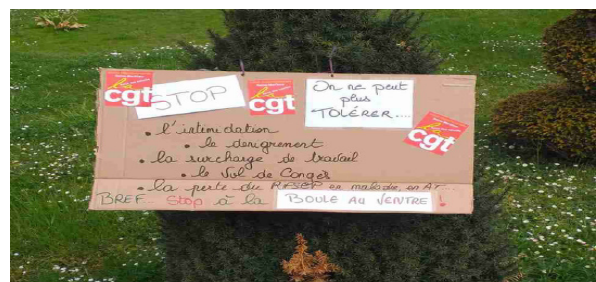 la cgt
STOP
la cgt
On ne peut
plus
TOLÉRER....
la cgt
• l'intimidation
• le denigrement
• la surcharge de travail
• le vol de Congés
• la perte du en maladie, en AT
BREF.. Stop à la BOULE AU VENTRE !